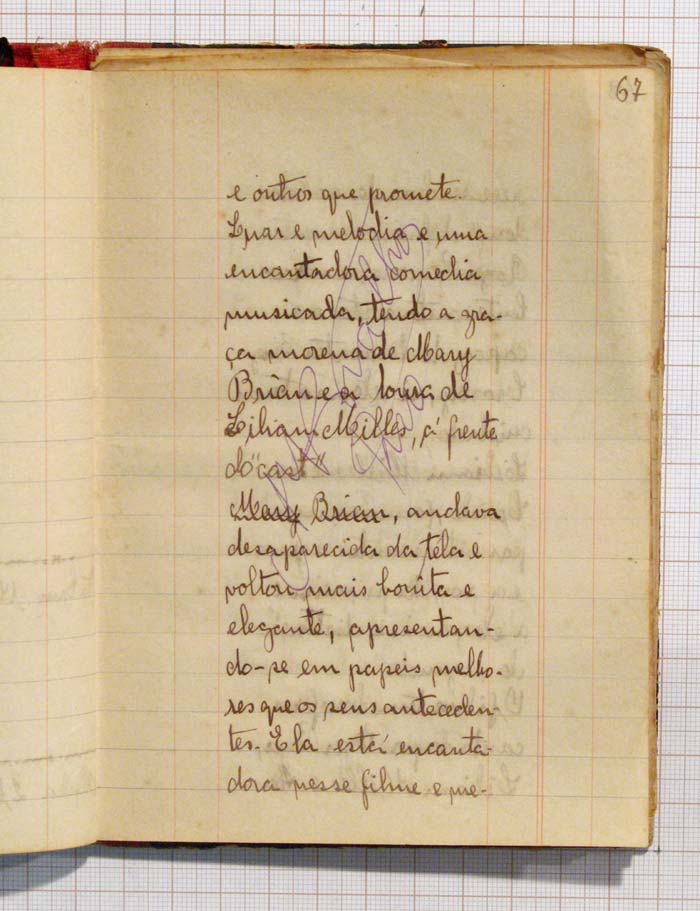 67
e outros que promete.
Luar e melodia e uma
encantadora comedia
musicada, tendo a gra-
ça morena de Mary
Brian e a loura de
Lilian Milles, á frente
do "cast"
Mary Brian, andava
desaparecida da tela e
voltou mais bonita e
elegante, apresentan-
do-se em papeis melho-
res que os seus anteceden-
tes. Ela está encanta-
dora nesse filme e me-